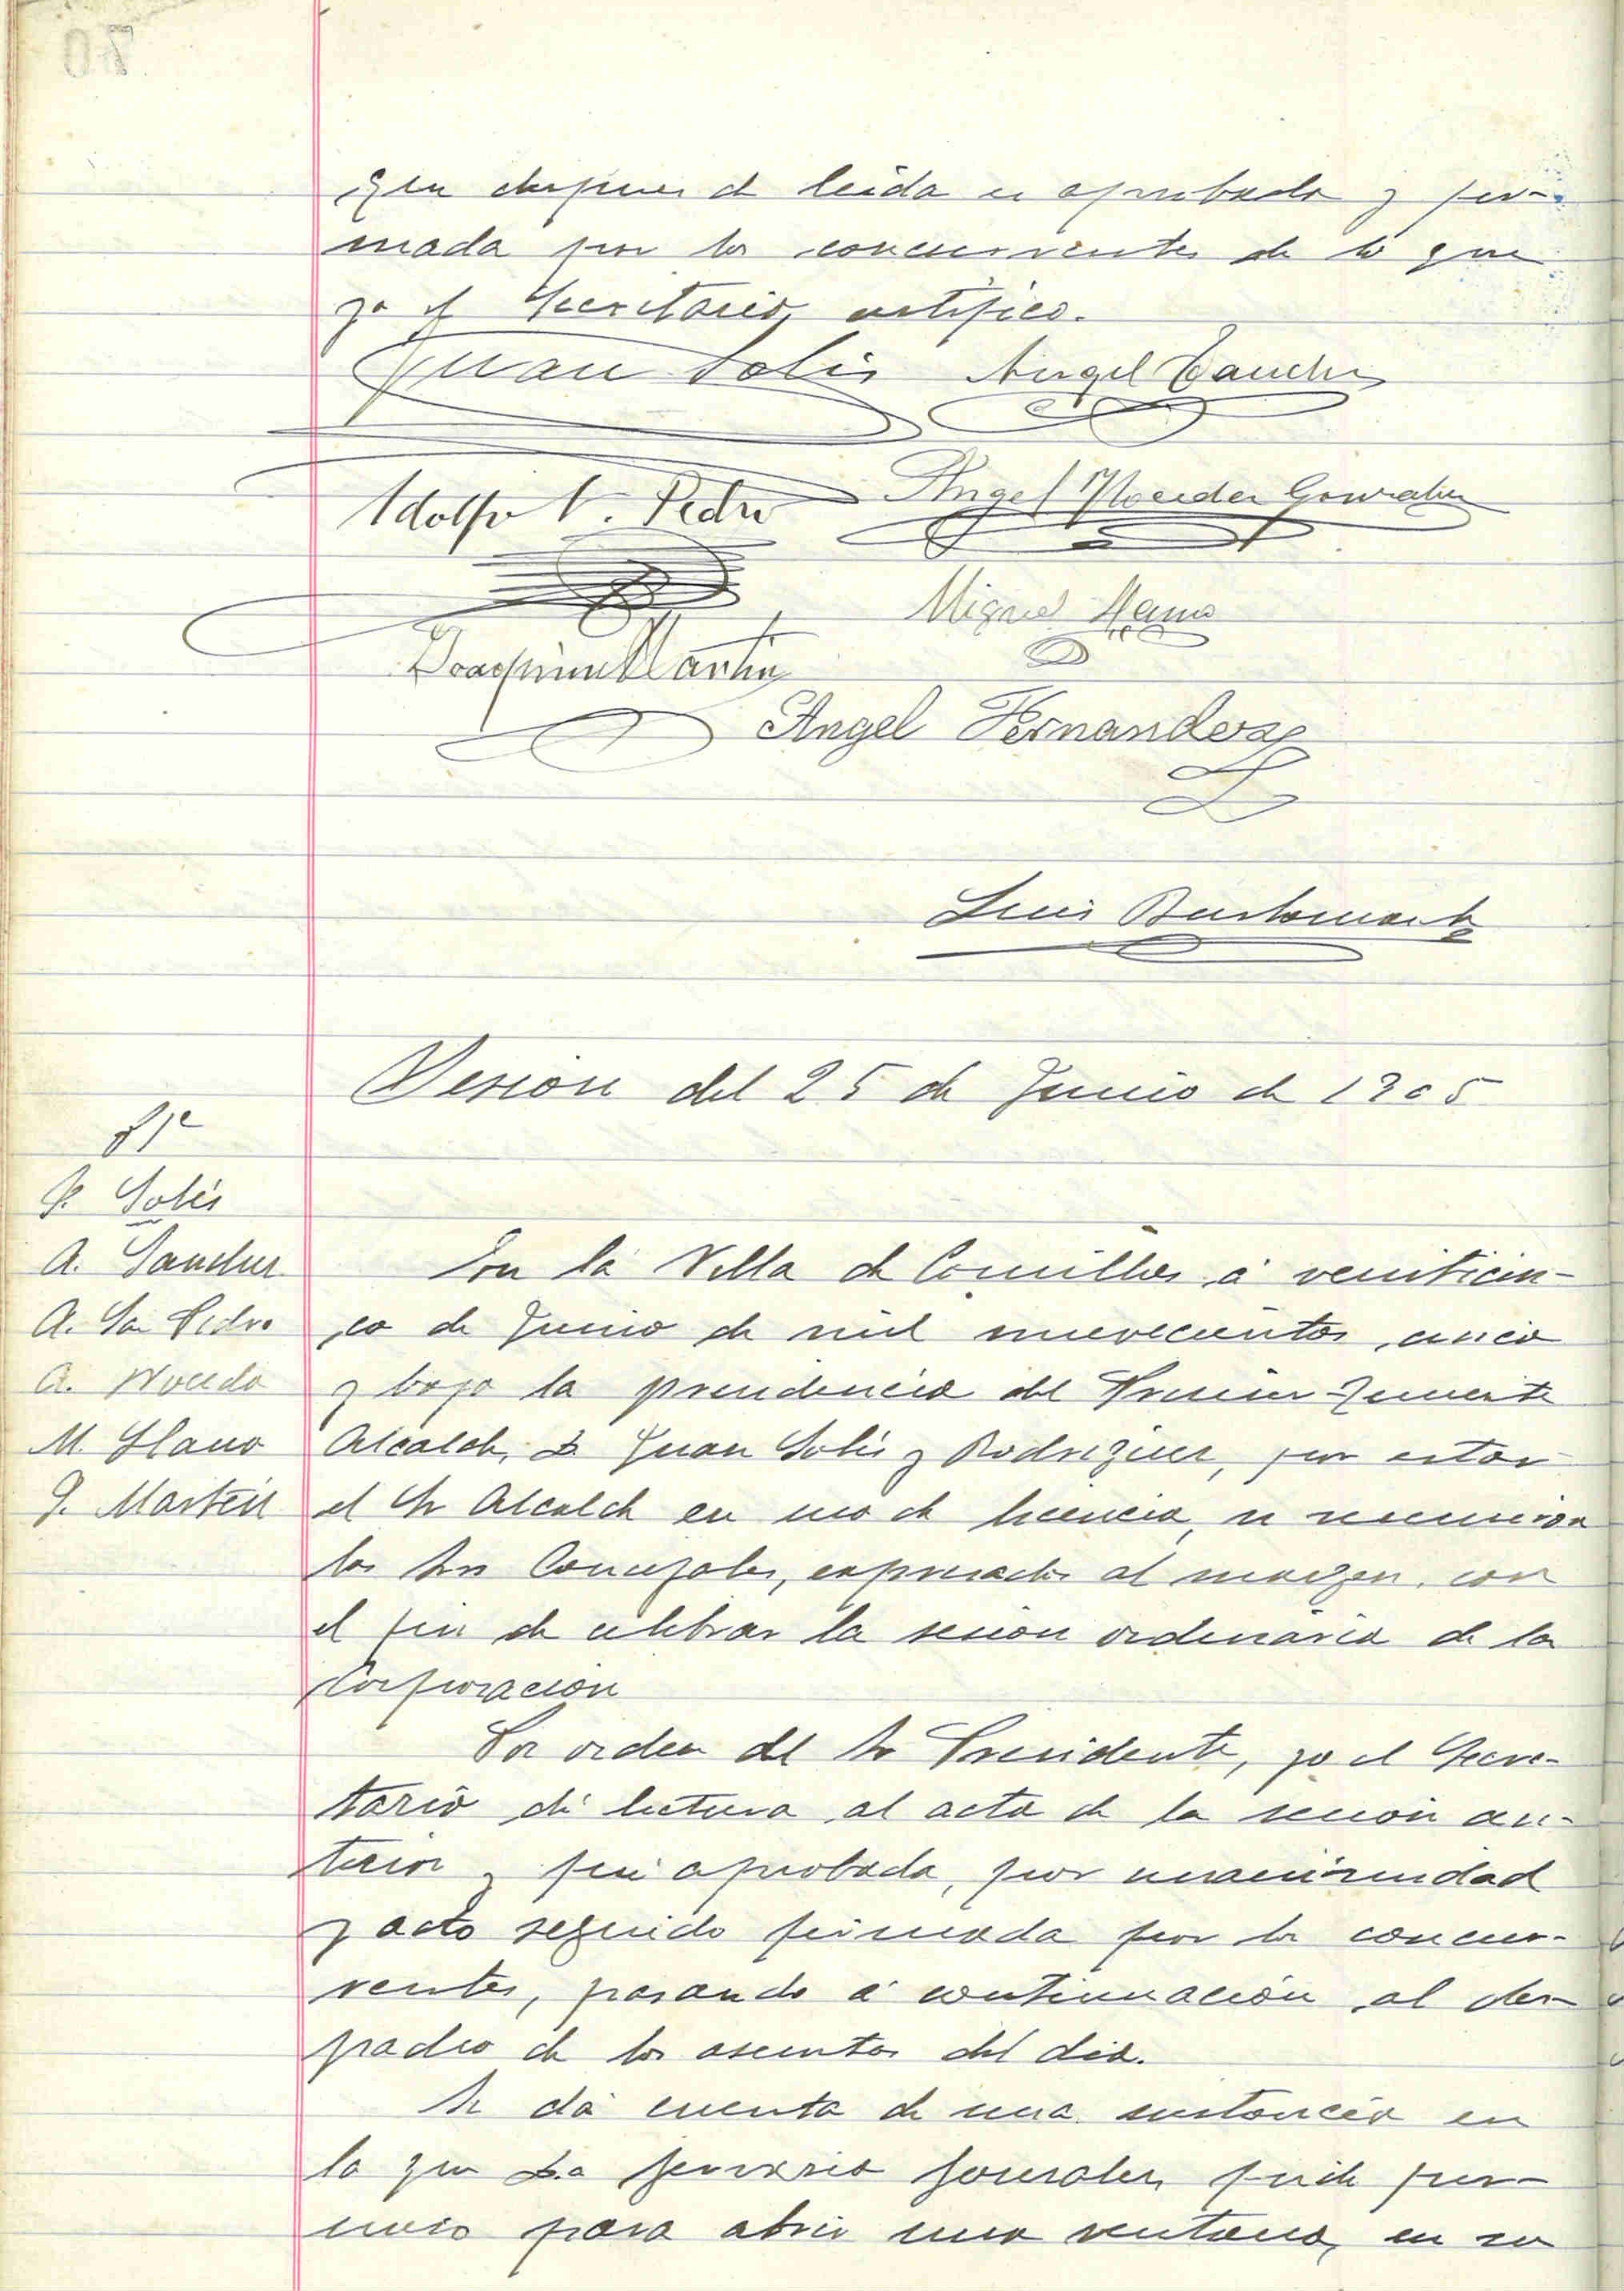 que despues de leida es aprobada y fir-
mada por los concurrentes de lo que
yo el Secretario, certifico.
Juan Solis Angel Sanchez
Adolfo S. Pedro Angel Noceda Gonzalez
Miguel Llano
Joaquin Martin
Angel Fernandez
Luis Bustamante
Sesion del 25 de Junio de 1905
Sres
J. Solís
A. Sanchez
A. San Pedro
A. Noceda
M. Llano
J. Martin
En la Villa de Comillas á veinticin-
co de Junio de mil novecientos cinco
y bajo la presidencia del Primer Teniente
Alcalde, D. Juan Solís y Rodriguez, por estar
el Sr Alcalde en uso de licencia, se reunieron
los Srs Concejales, expresados al margen, con
el fin de celebrar la sesion ordinaria de la
Corporacion
Por orden del Sr Presidente, yo el Secre-
tario dí lectura al acta de la sesión an-
terior y fué aprobada, por unanimidad
y acto seguido firmada por los concur-
rentes, pasando á continuación al des-
pacho de los asuntos del dia.
Se dá cuenta de una instancia en
la que Da Genoveva Gonzalez, pide per-
miso para abrir una ventana, en su